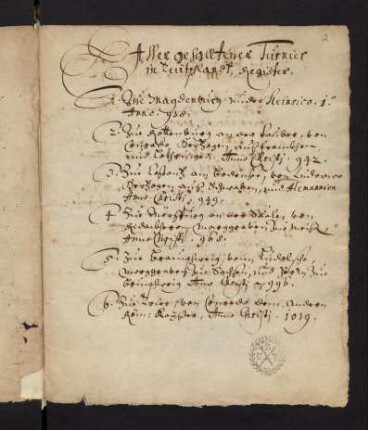 2
Aller gehaltener Turnier
in Teutschlandt, Register.
1. Zue Magdenburg under Heinrico. 1.
Anno 938.
2. Zue Rottenburg an der Tauber, von
Conrado Herzogen auß Franckhen
und Lothringen. Anno Christi 942.
3. Zue Costantz am Bodensee, von Ludovico
Herzogen auß Schwaben, und Alemannien
Anno Christi 949.
4. Zue Mörspurg an der Sahlen, von
Marggraven zue Meissen
Anno Christi 968.
5. Zue Braunschweig, vom Ludolpho,
Marggraven zue Sachsen, und Herzog zue
Braunschweig Anno Christi 996.
6. Zue Trier, von Conrado dem Andern
Röm: Kayser, Anno Christi. 1019.